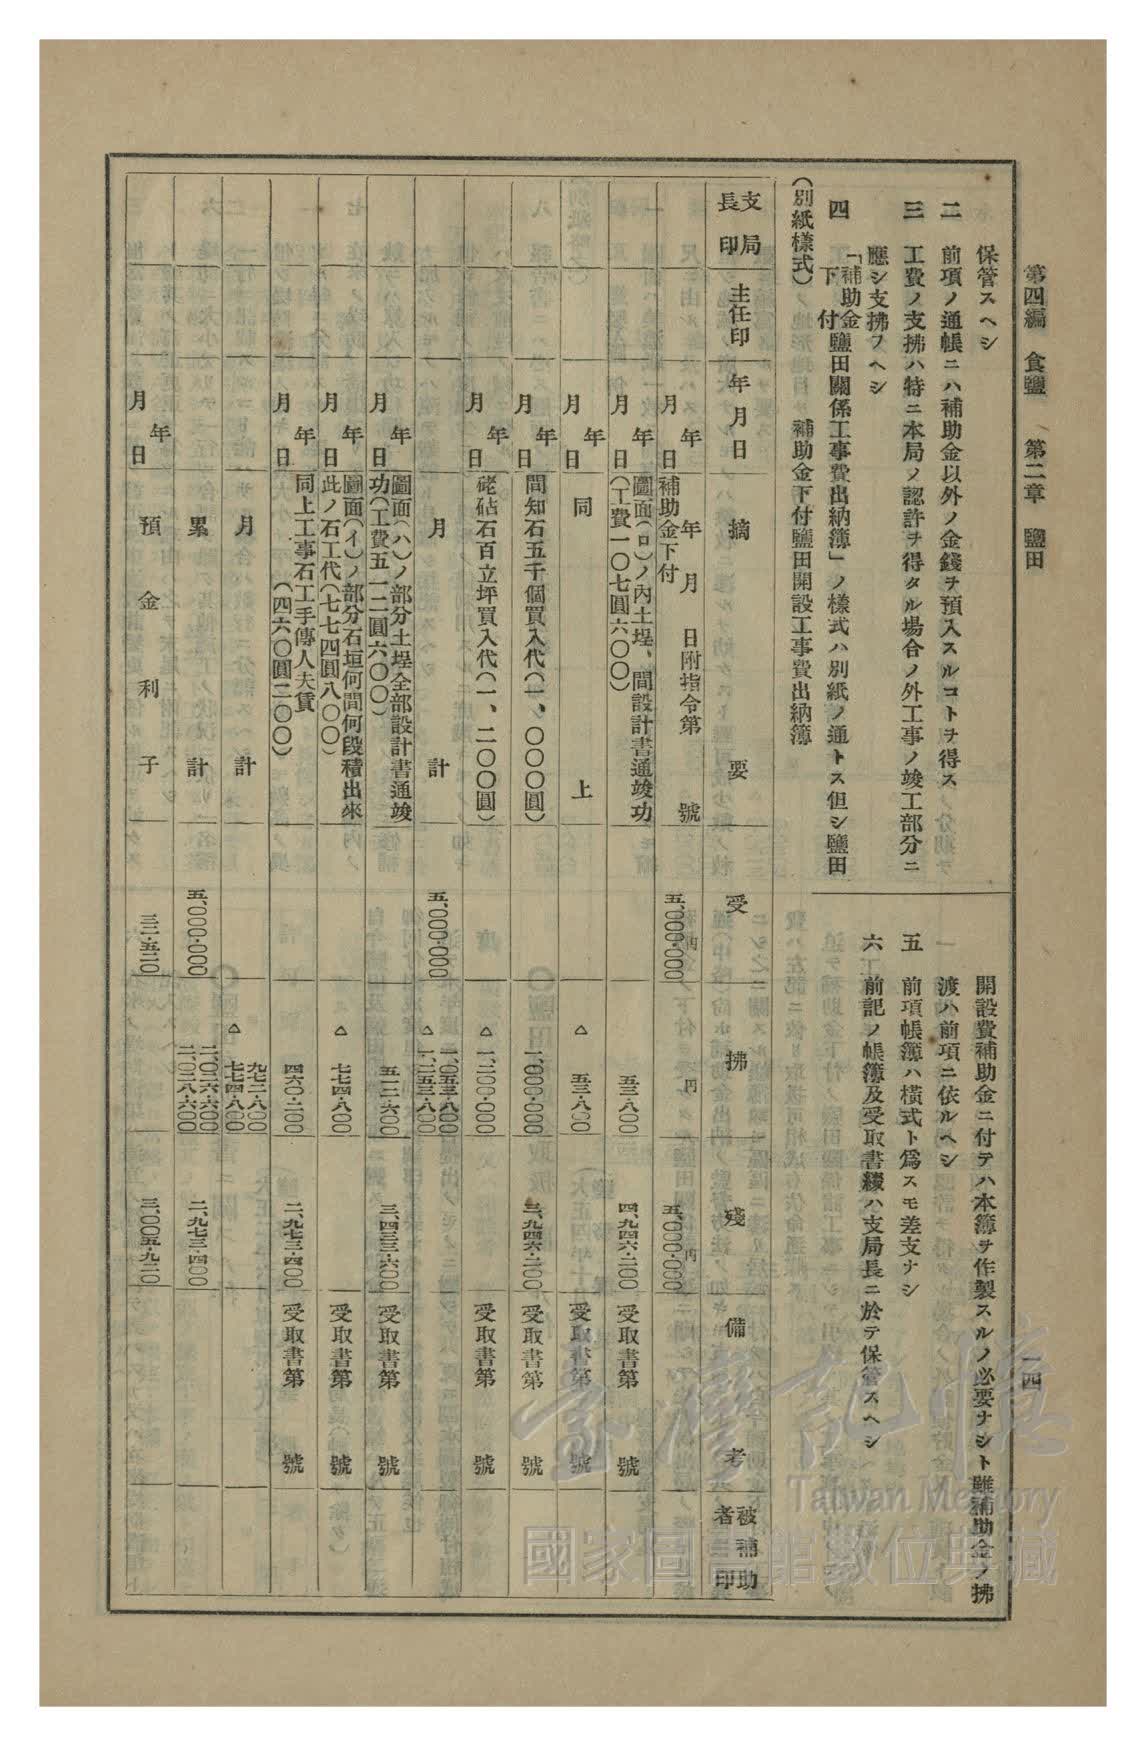 第四編　食鹽　　第二章　鹽田
一四
保管スヘシ
二　前項ノ通帳ニハ補助金以外ノ金錢ヲ預入スルコトヲ得ス
三　工費ノ支拂ハ特ニ本局ノ認許ヲ得タル場合ノ外工事ノ竣工部分ニ
應シ支拂フヘシ
四　「補助金下付鹽田關係工事費出納簿」ノ樣式ハ別紙ノ通トス但シ鹽田
開設費補助金ニ付テハ本簿ヲ作製スルノ必要ナシト雖補助金ノ拂
渡ハ前項ニ依ルヘシ
五　前項帳簿ハ橫式ト爲スモ差支ナシ
六　前記ノ帳簿及受取書綴ハ支局長ニ於テ保管スヘシ
(別紙樣式)　　補助金下付鹽田開設工事費出納簿
支局長印　主任印　年月日　摘　要　受　拂　殘　備　考　被補助者印
年月日　年　月　日附指令第　號補助金下付　五、〇〇〇・〇〇〇　五、〇〇〇・〇〇〇
年月日　圖面(ロ)ノ內土埕、間設計書通竣功(工費一〇七圓六〇〇)　五三・八〇〇　四、九四六・二〇〇　受取書第　號
年月日　同　上　△　五三・八〇〇　受取書第　號
年月日　間知石五千個買入代(一、〇〇〇圓)　一、〇〇〇・〇〇〇　三、九四六・二〇〇　受取書第　號
年月日　硓𥑮石百立坪買入代(一、二〇〇圓)　△　一、二〇〇・〇〇〇　受取書第　號
月　計　五、〇〇〇・〇〇〇　一、〇五三・八〇〇　△　一、二五三・八〇〇
年月日　圖面(ハ)ノ部分土埕全部設計書通竣功(工費五一二圓六〇〇)　五一二・六〇〇　三、四三三・六〇〇　受取書第　號
年月日　圖面(イ)ノ部分石垣何間何段積出來此ノ石工代(七七四圓八〇〇)　△　七七四・八〇〇　受取書第　號
年月日　同上工事石工手傳人夫賃(四六〇圓二〇〇)　四六〇・二〇〇　二、九七三・四〇〇　受取書第　號
月　計　九七二・八〇〇　△　七七四・八〇〇
累　計　五、〇〇〇・〇〇〇　二、〇二六・六〇〇　二、〇二八・六〇〇　二、九七三・四〇〇
年月日　預　金　利　子　三二・五二〇　三、〇〇五・九二〇
臺灣記憶
Taiwan Memory
國家圖書館數位典藏